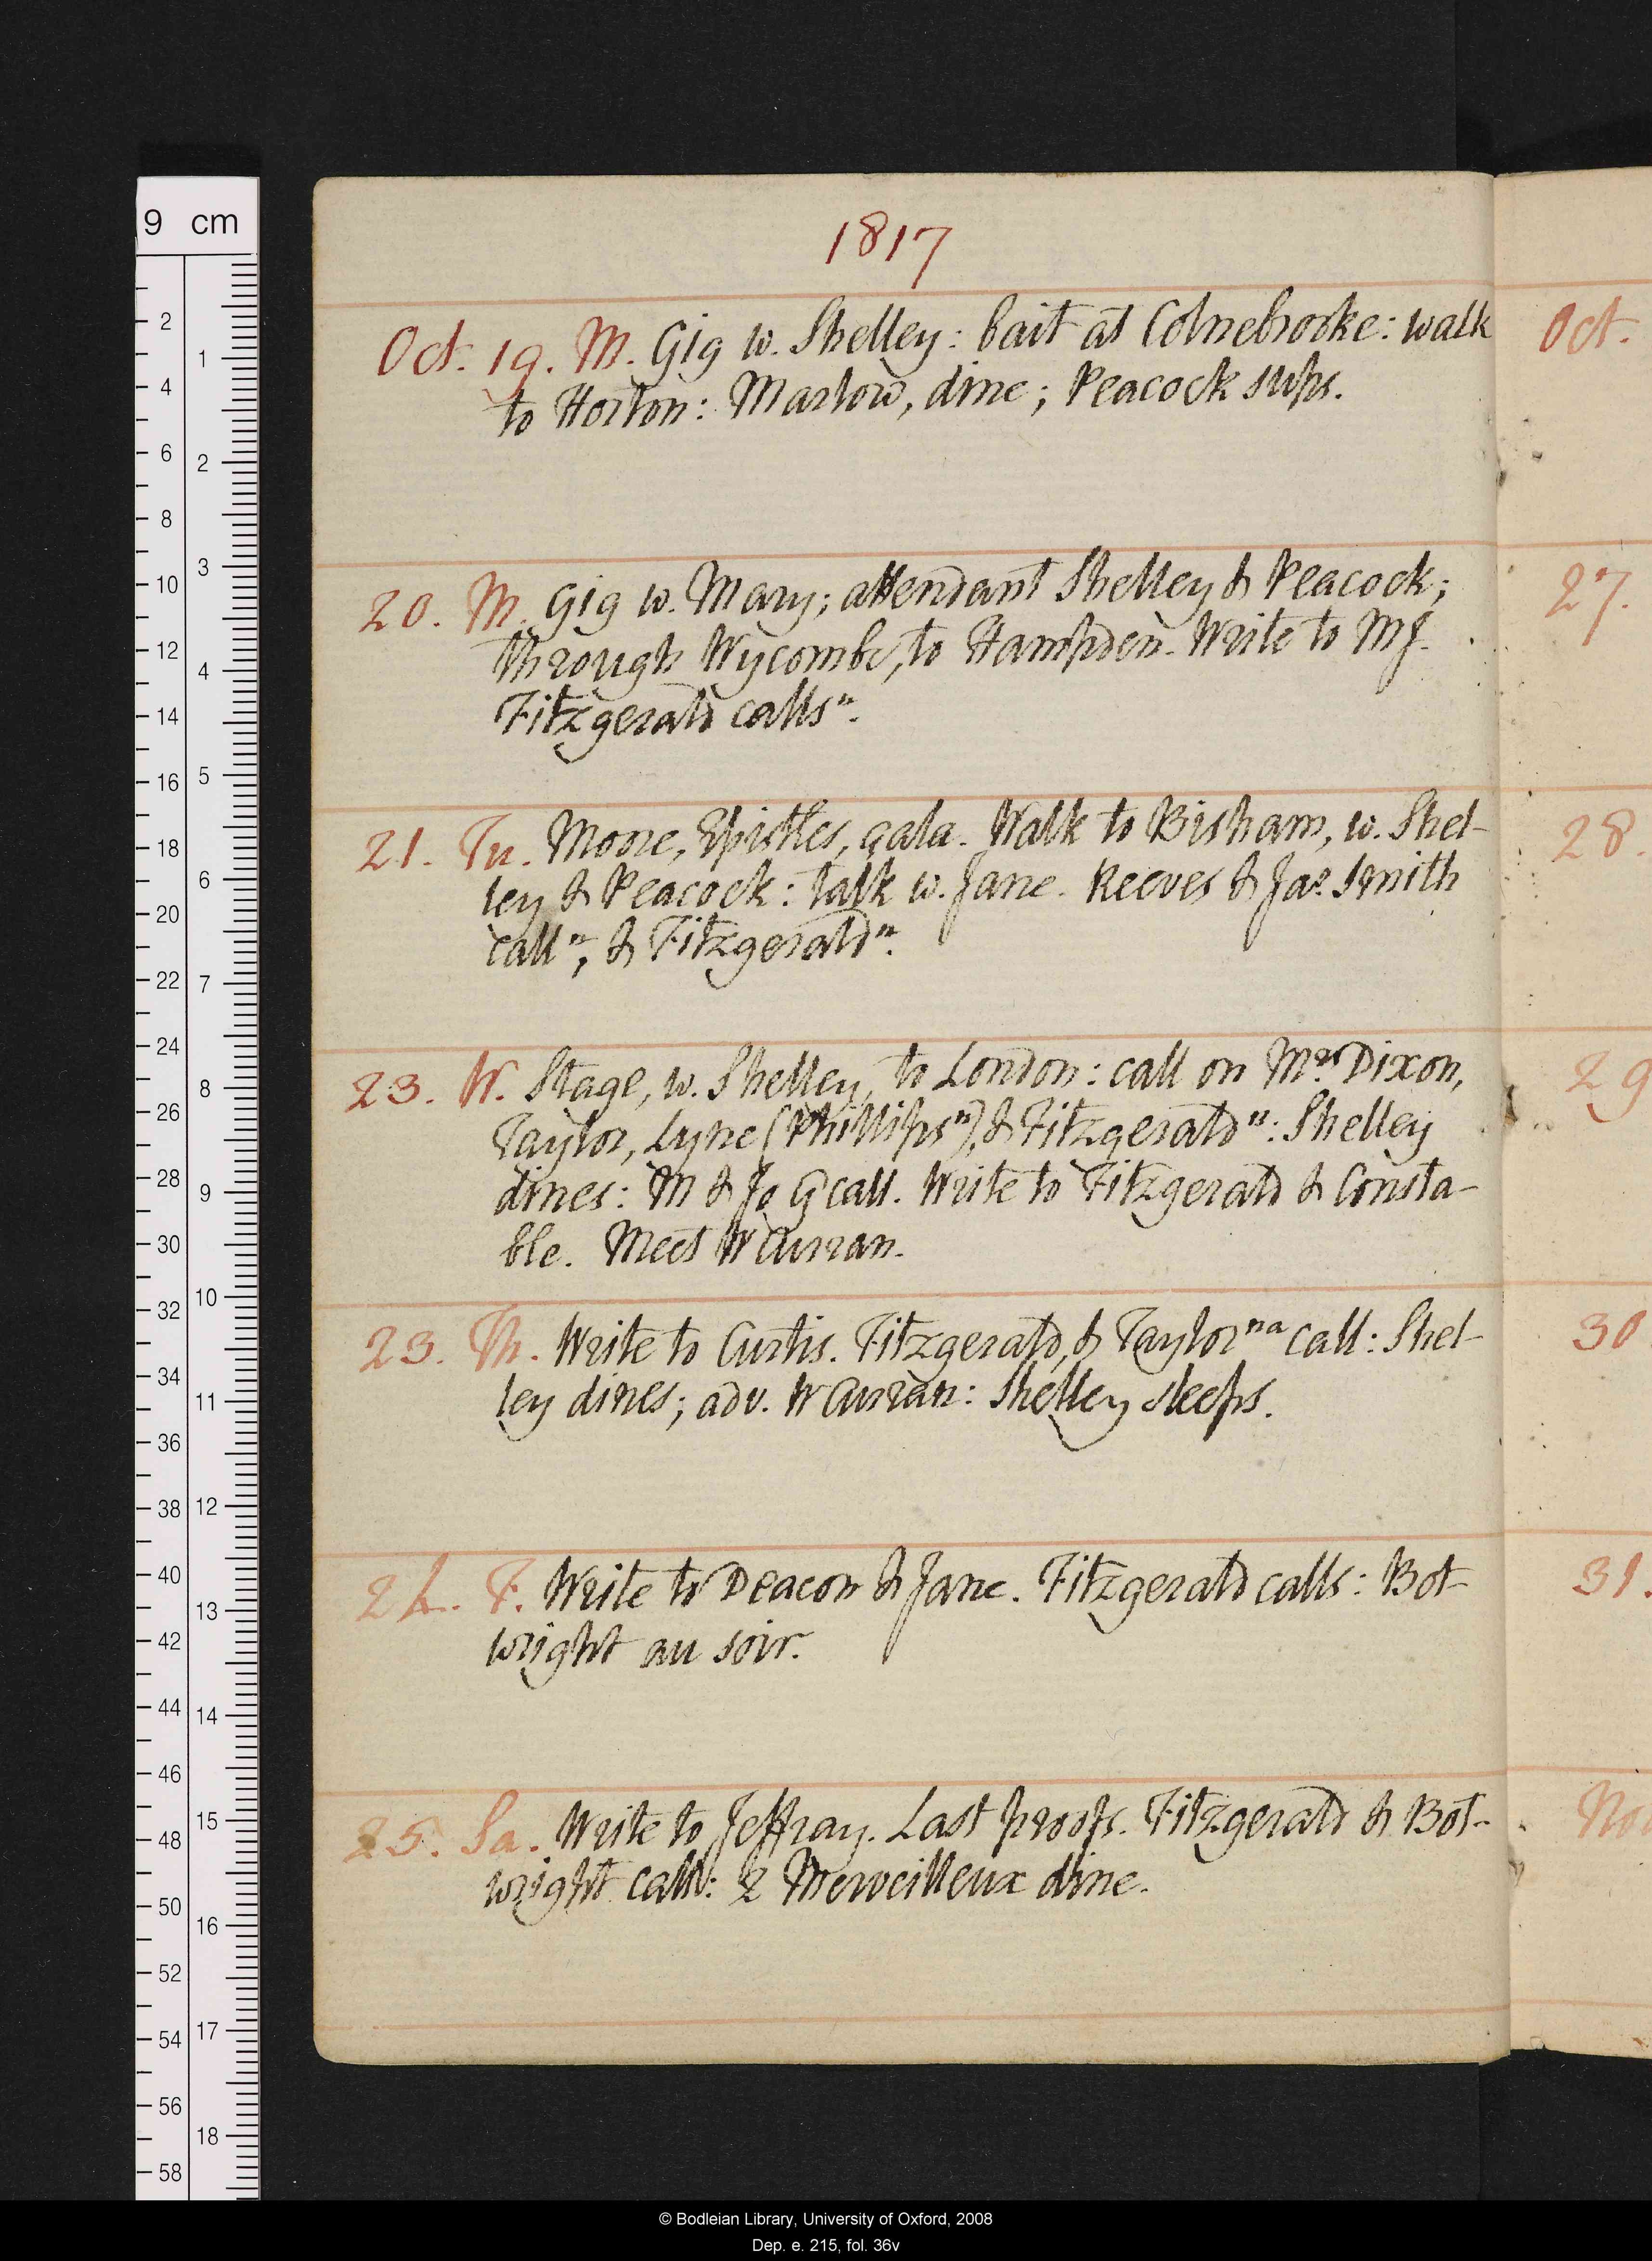 9 cm
1817
Oct. 19. M. Gig w. Shelley: bait at Colnebrooke: walk
to Horton: Marlow, dine; Peacock sups.
20. M. Gig w. Mary; attendant Shelley & Peacock;
through Wycombe, to Hampden. Write to MJ.
Fitzgerald callsⁿ.
21. Tu. Moore, Epistles, çala. Walk to Bisham, w. Shel-
ley & Peacock: talk w. Jane. Reeves & Jas. Smith
callⁿ, & Fitzgeraldⁿ.
23. W. Stage, w. Shelley, to London: call on Mrs Dixon,
Taylor, Lyne (Phillipsⁿ), & Fitzgeraldⁿ: Shelley
dines: M & Jo G call. Write to Fitzgerald & Consta-
ble. Meet W Curran.
23. Th. Write to Curtis. Fitzgerald, & Taylorⁿᵃ call: Shel-
ley dines; adv. W Curran: Shelley sleeps.
24. F. Write to Deacon & Jane. Fitzgerald calls: Bot-
wright au soir.
25. Sa. Write to Jeffray. Last proofs. Fitzgerald & Bot-
wright call: 2 Merveilleux dine.
Oct.
27.
28.
29
30
31.
2
4
6
8
10
12
14
16
18
20
22
24
26
28
30
32
34
36
38
40
42
44
46
48
50
52
54
56
58
1
2
3
4
5
6
7
8
9
10
11
12
13
14
15
16
17
18
© Bodleian Library, University of Oxford, 2008
Dep. e. 215, fol. 36v